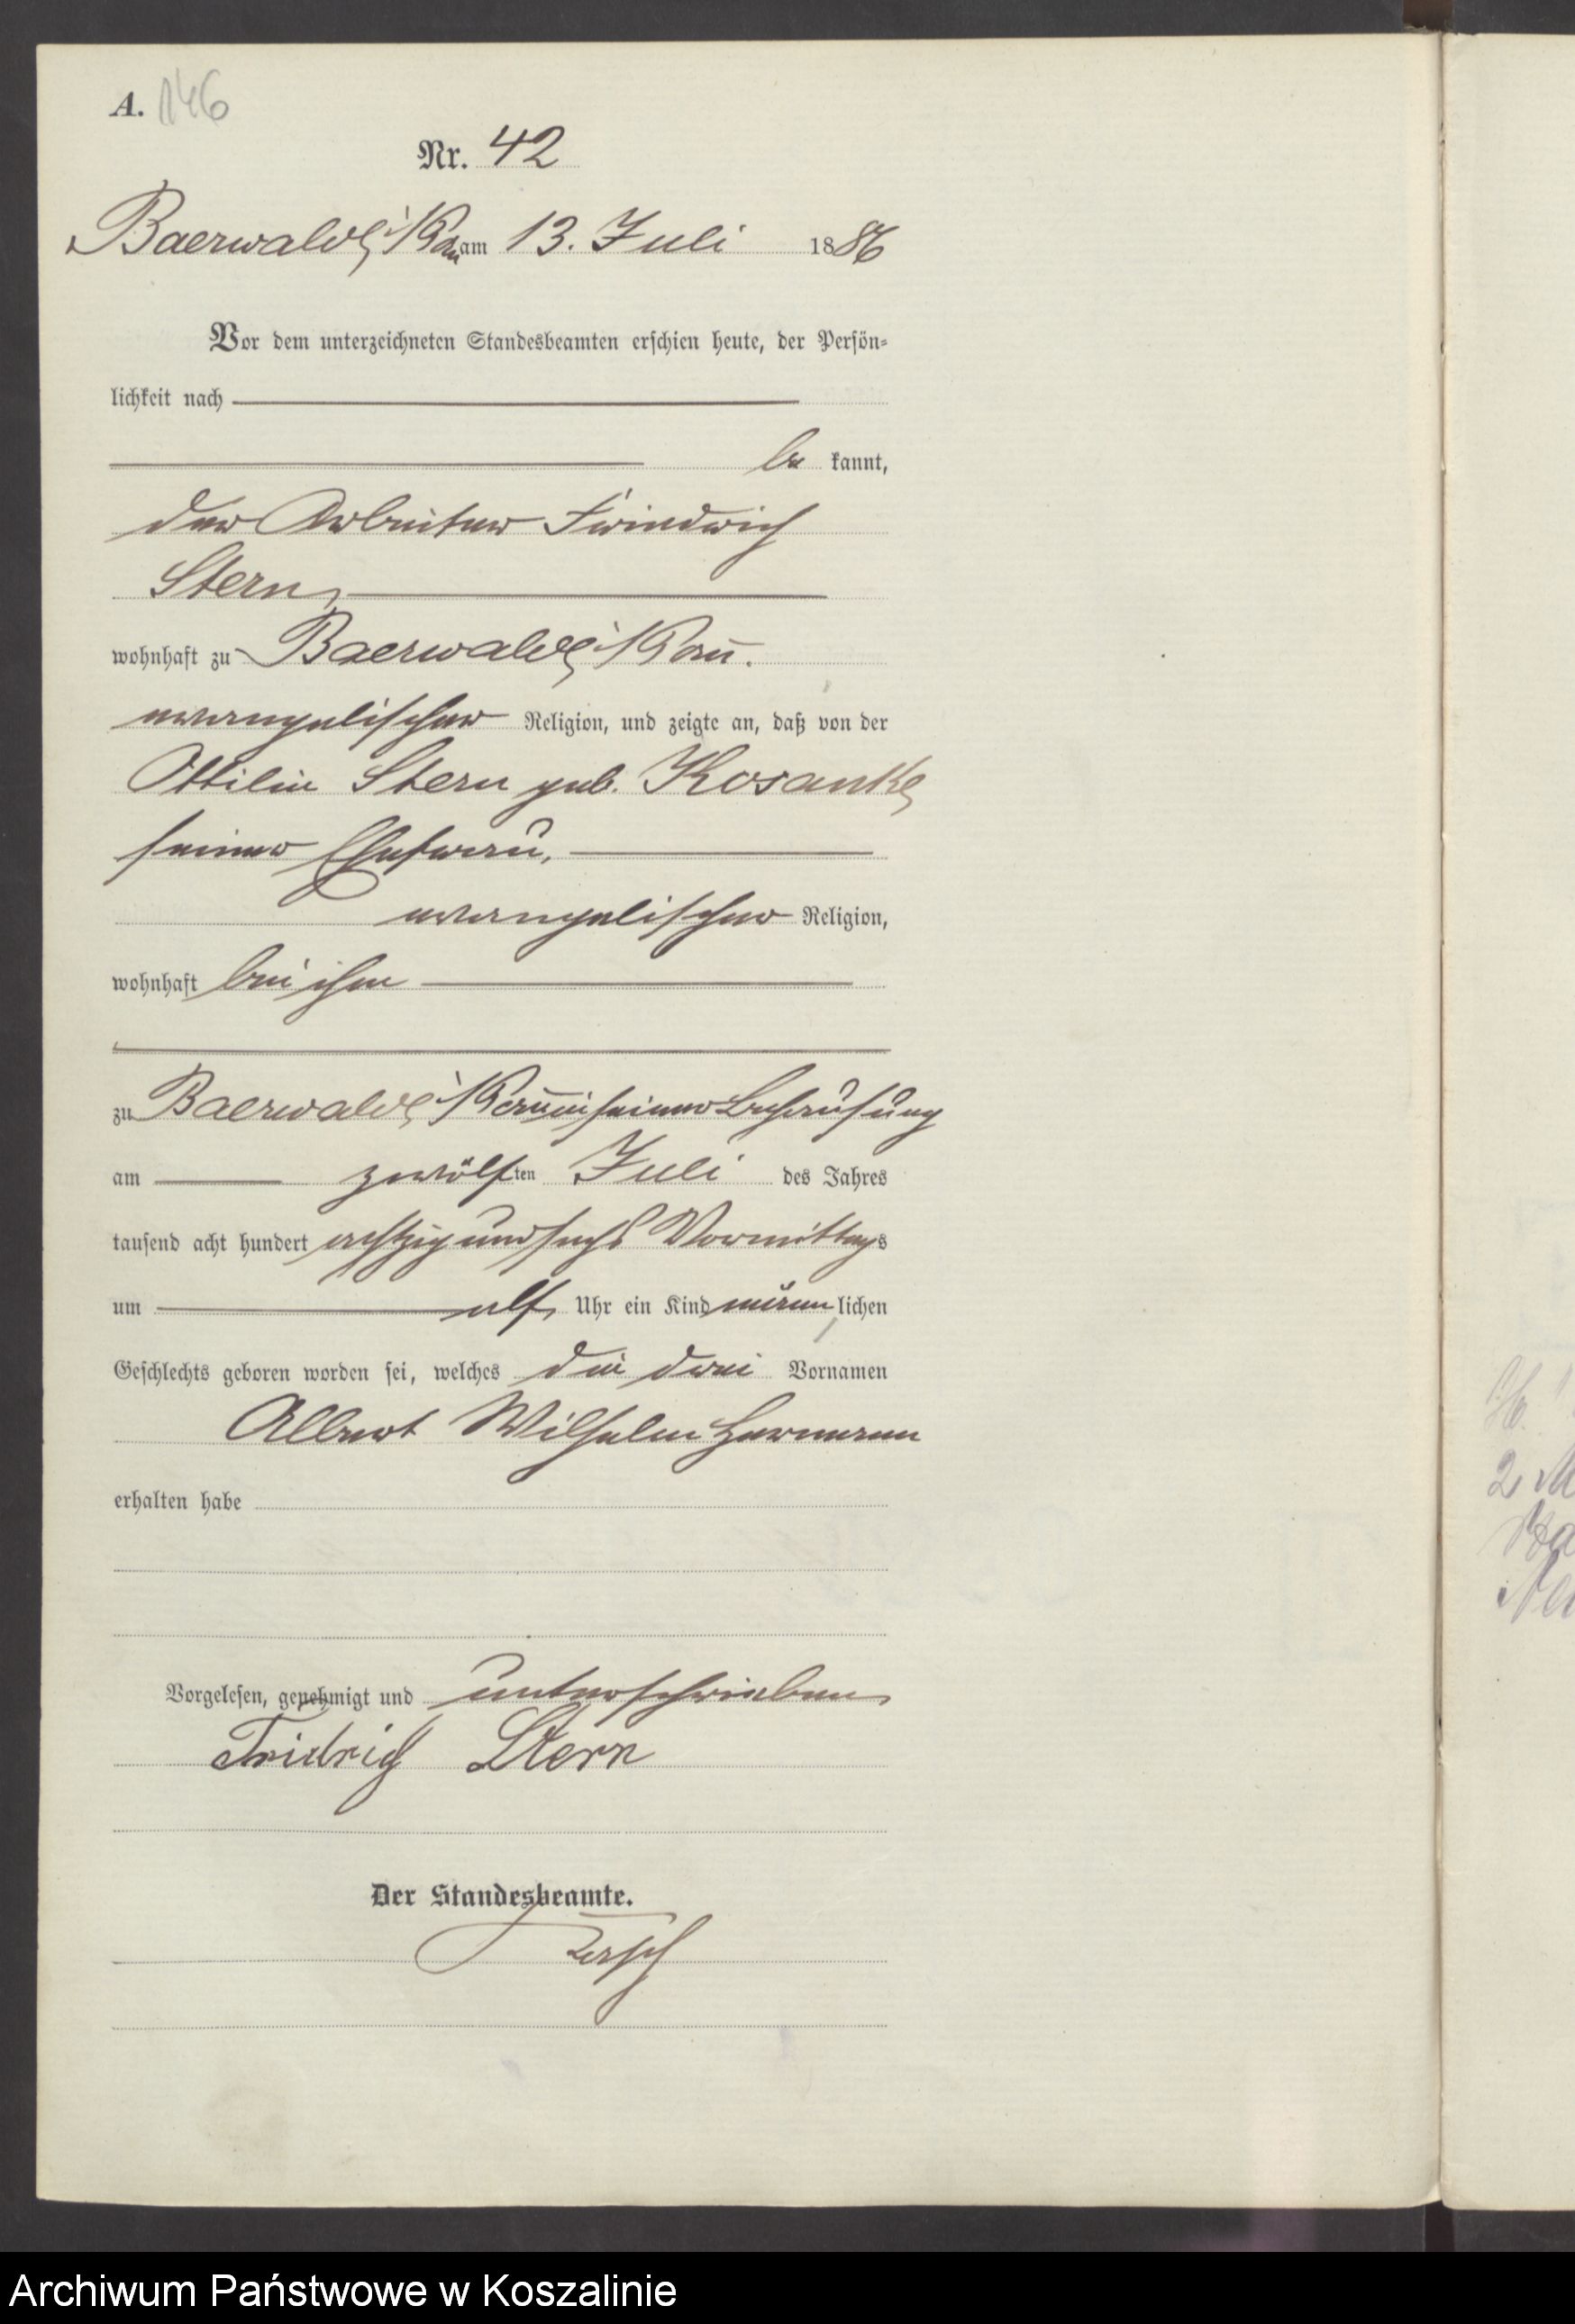 A. 146
Nr. 42
Baerwalde i/Pom am 13. Juli 1886
Vor dem unterzeichneten Standesbeamten erschien heute, der Persön-
lichkeit nach
be kannt,
der Arbeiter Friedrich
Stern,
wohnhaft zu Baerwalde i/Pom.
evangelischer Religion, und zeigte an, daß von der
Ottilie Stern geb. Kosanke,
seiner Ehefrau,
evangelischer Religion,
wohnhaft bei ihm
zu Baerwalde i/Pom in seiner Behausung
am zwölften Juli des Jahres
tausend acht hundert achtzig und sechs Vormittags
um elf Uhr ein Kind männlichen
Geschlechts geboren worden sei, welches die drei Vornamen
Albert Wilhelm Hermann
erhalten habe
Vorgelesen, genehmigt und unterschrieben
Fridrich Stern
Der Standesbeamte.
2
Archiwum Państwowe w Koszalinie